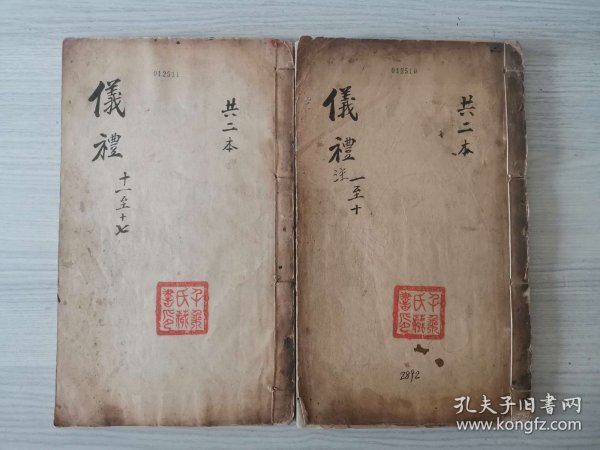 012511
儀禮
十一至十七
共二本
012510
儀禮
一至十
共二本
2892
孔夫子旧书网
www.kongfz.com